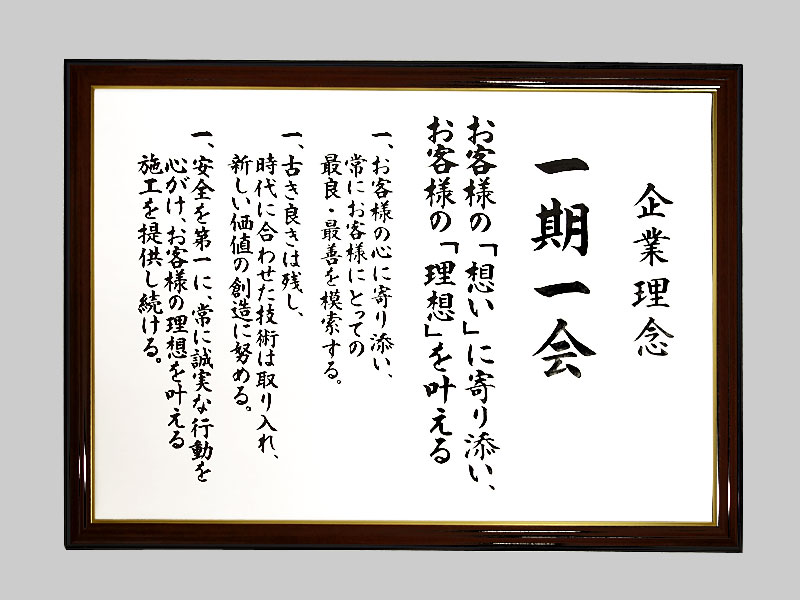 企業理念
一期一会
お客様の「想い」に寄り添い、
お客様の「理想」を叶える
一、お客様の心に寄り添い、
常にお客様にとっての
最良・最善を模索する。
一、古き良きは残し、
時代に合わせた技術は取り入れ、
新しい価値の創造に努める。
一、安全を第一に、常に誠実な行動を
心がけ、お客様の理想を叶える
施工を提供し続ける。